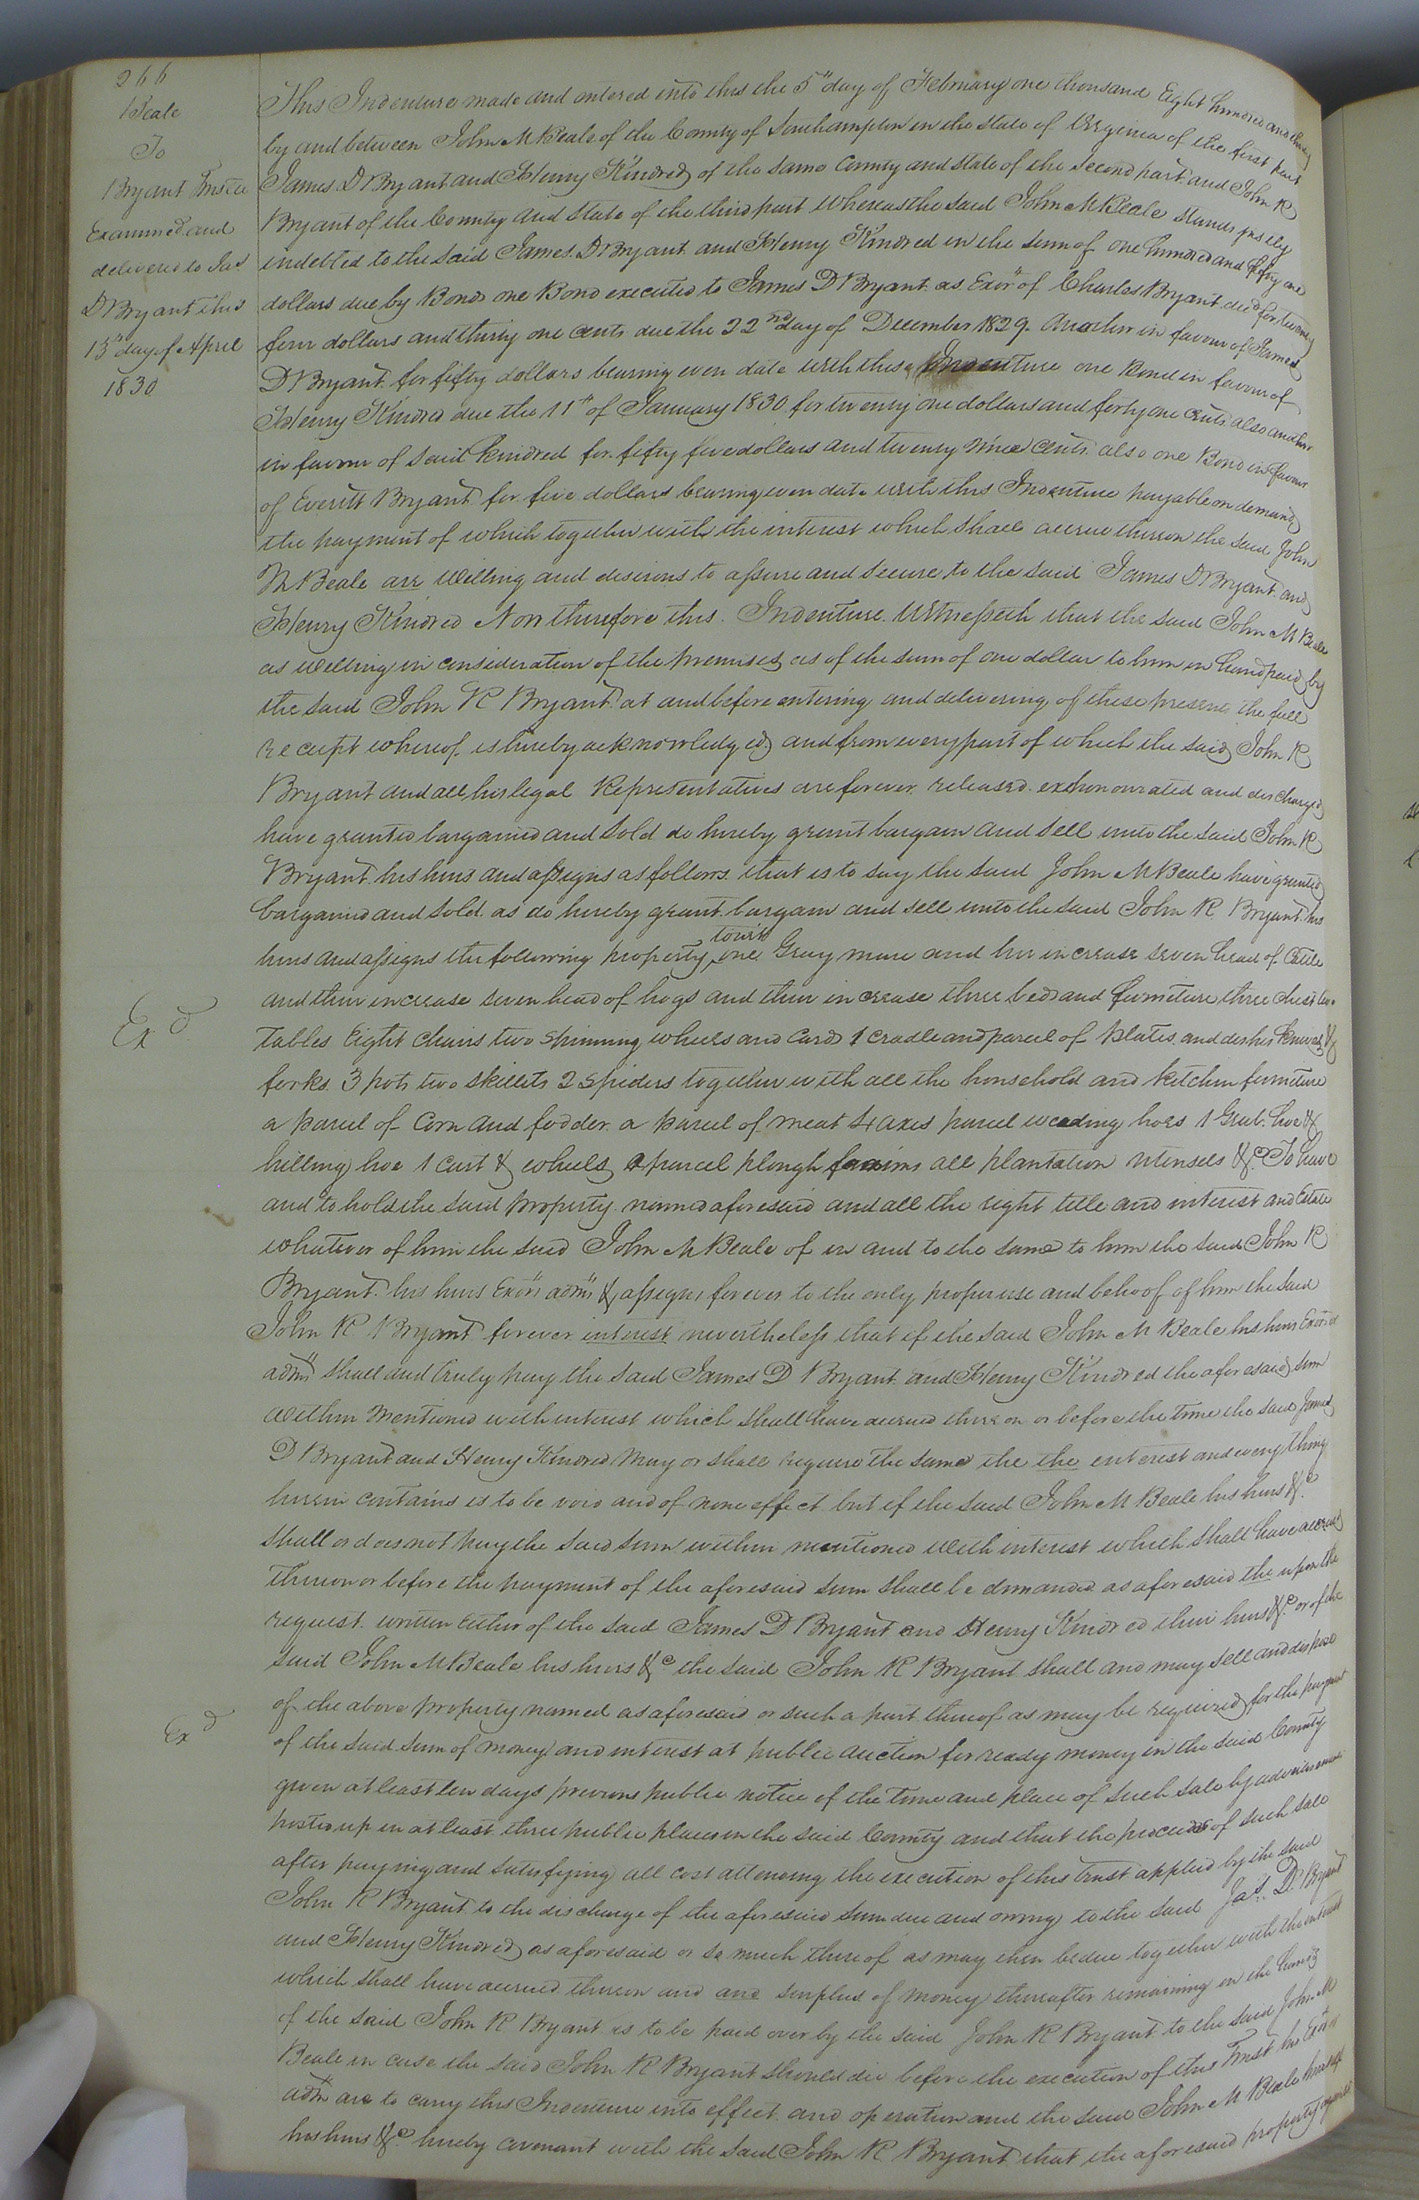 266
Beale
To
Bryant Trustee
Examined and
delivered to Jas
D Bryant this
13th day of April
1830
This Indenture made and entered into this the 5th day of February one thousand Eight hundred and thirty
by and between John M Beale of the County of Southampton in the State of Virginia of the first part
James D Bryant and Henry Kindred of the same County and State of the second part and John R
Bryant of the County and State of the third part Whereas the said John M Beale stands justly
indebted to the said James D Bryant and Henry Kindred in the sum of one hundred and fifty one
dollars due by Bonds one Bond executed to James D Bryant as Exor of Charles Bryant decd for twenty
four dollars and thirty one cents due the 22nd day of December 1829. Another in favour of James
D Bryant for fifty dollars bearing even date with these Indenture one Bond in favour of
Henry Kindred due the 11th of January 1830 for twenty one dollars and forty one cents also another
in favour of said Kindred for fifty five dollars and twenty nine cents also one Bond in favour
of Everitt Bryant for five dollars bearing even date with this Indenture payable on demand
the payment of which together with the interest which shall accrue thereon the said John
M Beale are Willing and desirous to assure and secure to the said James D Bryant and
Henry Kindred Now therefore this Indenture Witnesseth that the said John M Beale
as welling in consideration of the premises as of the sum of one dollar to him in hand paid by
the said John R Bryant at and before entering and delivering of these present the full
receipt whereof is hereby acknowledged and from every part of which the said John R
Bryant and all his legal Representatives are forever released exhonourated and discharged
have granted bargained and sold do hereby grant bargain and sell unto the said John R
Bryant his heirs and assigns as follows that is to say the said John M Beale have granted
bargained and sold as do hereby grant bargain and sell unto the said John R Bryant his
heirs and assigns the following property towit one Gray mare and her increase seven head of Cattle
Exd
and their increase seven head of hogs and their increase three beds and furniture three chests two
tables Eight chairs two spinning wheels and Cards 1 cradle and parcel of Plates and dishes knives &
forks 3 pots two skillits 2 spiders together with all the household and kitchen furniture
a parcel of Corn and fodder a parcel of meat 4 axes parcel weeding hoes 1 Grub hoe &
hilling hoe 1 cart & wheels a parcel plough all plantation utensels &c To have
and to hold the said property named aforesaid and all the right title and interest and Estate
whatever of him the said John M Beale of in and to the same to him the said John R
Bryant his heirs Exors adms & assigns forever to the only proper use and behoof of him the said
John R Bryant forever interest nevertheless that if the said John M Beale his heirs Exors or
adms shall and truly pay the said James D Bryant and Henry Kindred the aforesaid sum
within mentioned with interest which shall have accrued there on or before the time the said James
D Bryant and Henry Kindred may or shall require the same the the interest and every thing
herein contains is to be void and of none effect but if the said John M Beale his heirs &c
shall or does not pay the said sum within mentioned with interest which shall have accrued
thereon or before the payment of the aforesaid sum shall be demanded as aforesaid the upon the
request written either of the said James D Bryant and Henry Kindred their heirs &c or of the
said John M Beale his heirs &c the said John R Bryant shall and may sell and dispose
Exd
of the above property named as aforesaid or such a part thereof as may be required for the payment
of the said sum of money and interest at public auction for ready money in the said County
given at least ten days previous public notice of the time and place of such sale by advertisement
posted up in at least three public places in the said County and that the proceeds of such sale
after paying and satisfying all cost attending the execution of this trust applied by the said
John R Bryant to the discharge of the aforesaid sum due and owing to the said Jas. D. Bryant
and Henry Kindred as aforesaid or so much thereof as may then be due together with the interest
which shall have accrued thereon and and surplus of money thereafter remaining in the hands
of the said John R Bryant is to be paid over by the said John R Bryant to the said John M
Beale in case the said John R Bryant should die before the execution of this Trust his Exors or
adm are to carry this Indenture into effect and operation and the said John M Beale himself
his heirs &c hereby covenant with the said John R Bryant that the aforesaid property